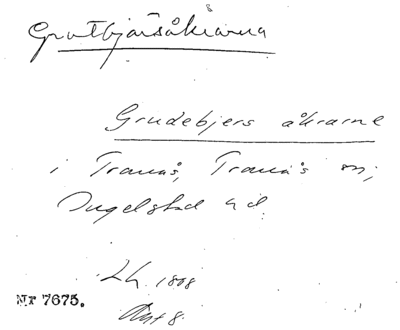 Grutbjärsåkrarna
Grudebjers åkrarne
i Tranås, Tranås sn,
Ingelstad hd.
Lh. 1808
Akt 8.
Nr 7675.